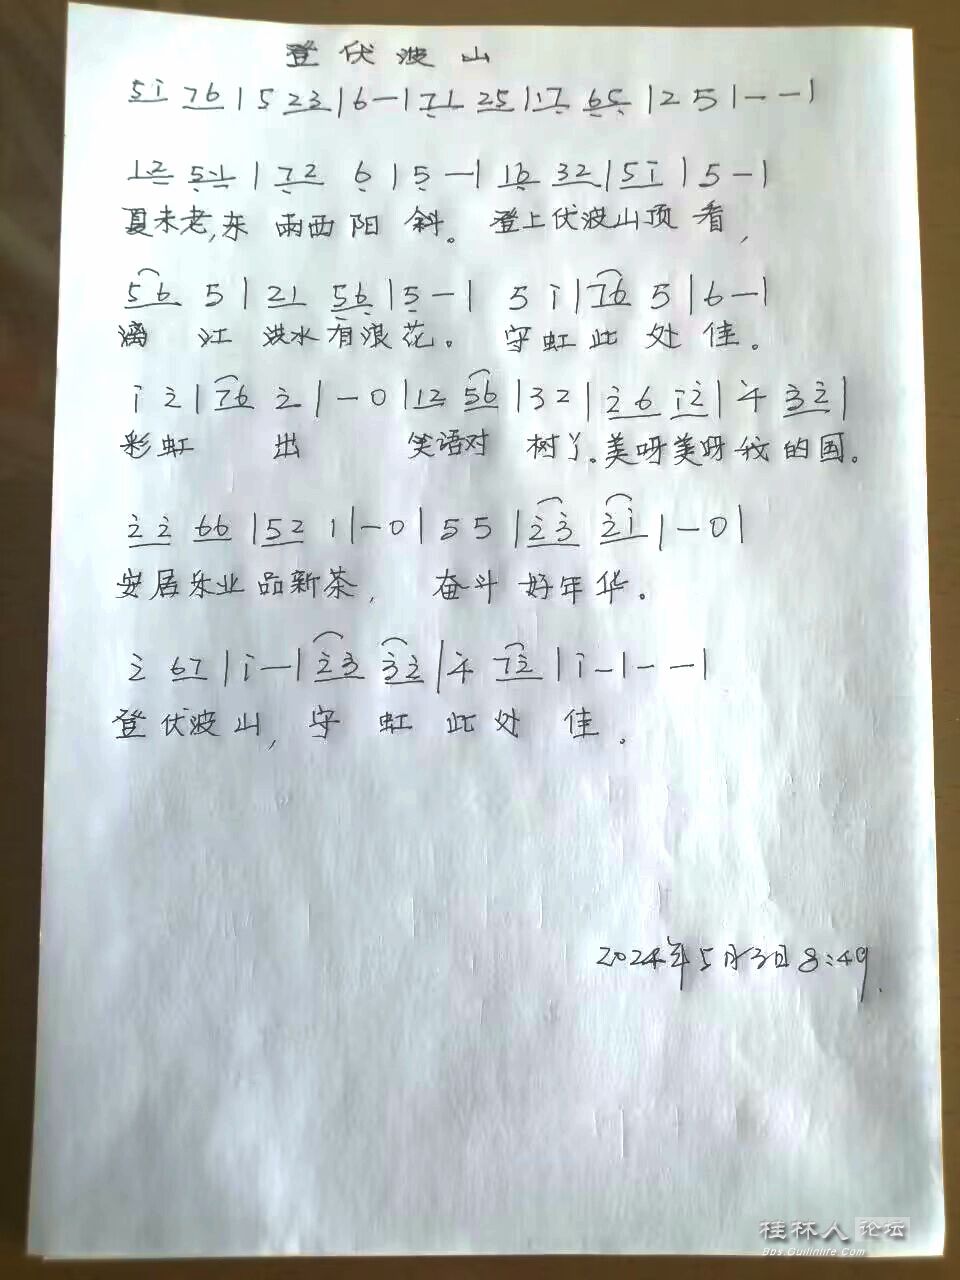 登伏波山
5i 76 | 5 23 | 6 - | 71 25 | 17 65 | 2 5 | - - |
12 51 | 72 6 | 5 - | 16 32 | 5i | 5 - |
夏未老,东雨西阳斜。登上伏波山顶看,
56 5 | 21 56 | 5 - | 5 i | 76 5 | 6 - |
漓江洪水有浪花。守虹此处佳。
i 2 | 76 2 | - 0 | 12 56 | 32 | 26 i2 | 4 32 |
彩虹出笑语对树丫。美呀美呀我的国。
22 66 | 52 1 | - 0 | 5 5 | 23 2i | - 0 |
安居乐业品新茶,奋斗好年华。
2 67 | i - | 23 32 | 4 72 | i - | - - |
登伏波山,守虹此处佳。
2024年5月3日8:49.
桂林人论坛
Bbs.Guilinlife.Com